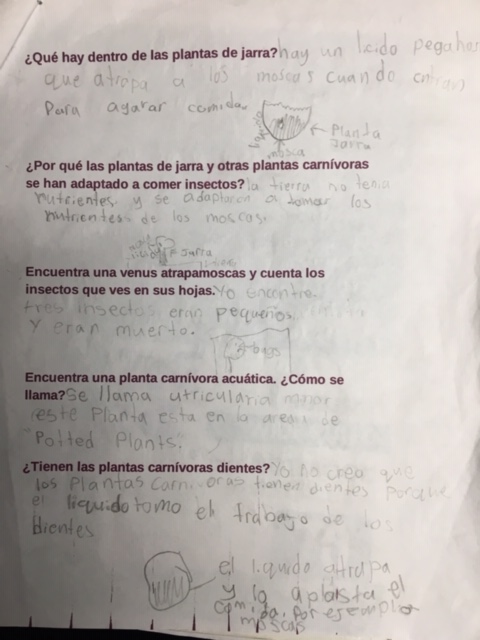 ¿Qué hay dentro de las plantas de jarra? hay un lcido pegahos
que atrapa a los moscas cuando entran
Para agarar comida.
liquido
← Planta
Jarra
mosca
¿Por qué las plantas de jarra y otras plantas carnívoras
se han adaptado a comer insectos? la tierra no tenia
nutrientes y se adaptaron a tomar los
nutrientes de los moscas.
Jarra
Encuentra una venus atrapamoscas y cuenta los
insectos que ves en sus hojas. Yo encontre
tres insectos eran pequeños
Y eran muerto.
Encuentra una planta carnívora acuática. ¿Cómo se
llama? Se llama utricularia minor
este Planta esta en la area de
"Potted Plants".
¿Tienen las plantas carnívoras dientes? Yo no creo que
los Plantas Carnivoras tienen dientes Porque
el liquido tomo el trabajo de los
dientes
el liquido atrapa
y lo aplasta el
comida. Por esemplo
moscas